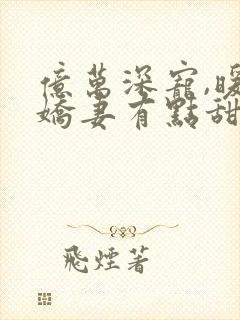 億萬深寵,暖
嬌妻有點甜
飛煙著